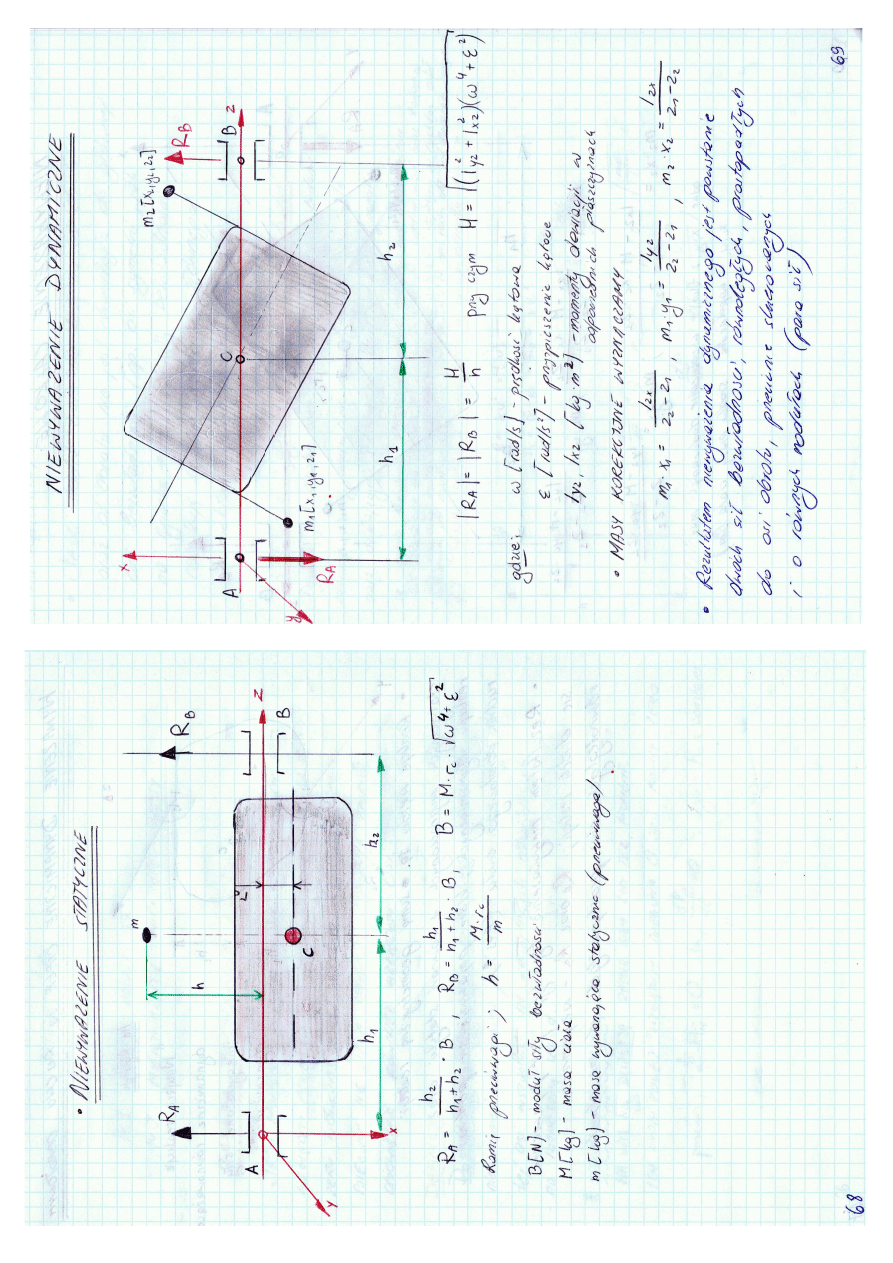 • NIEWYWAŻENIE STATYCZNE
m
R_A
R_B
h
r_c
A
B
C
z
x
y
h₁
h₂
R_A = h₂/(h₁+h₂) · B , R_B = h₁/(h₁+h₂) · B , B = M·r_c·√(ω⁴+ε²)
Ramię przeciwwagi ; h = M·r_c/m
B[N] - moduł siły bezwładności
M[kg] - masa ciała
m[kg] - masa wyważająca statycznie (przeciwwaga).
68
NIEWYWAŻENIE DYNAMICZNE
x
y
z
A
B
C
R_A
R_B
m₁[x₁,y₁,z₁]
m₂[x₂,y₂,z₂]
h₁
h₂
|R_A| = |R_B| = H/h przy czym H = √((I²yz + I²xz)(ω⁴+ε²))
gdzie: ω [rad/s] - prędkość kątowa
ε [rad/s²] - przyspieszenie kątowe
Iyz, Ixz [kg·m²] - momenty dewiacji w
odpowiednich płaszczyznach
• MASY KOREKCYJNE WYZNACZAMY
m₁·x₁ = Izx/(z₂-z₁) , m₁·y₁ = Iyz/(z₂-z₁) , m₂·x₂ = Izx/(z₁-z₂)
• Rezultatem niewyważenia dynamicznego jest powstanie
dwóch sił bezwładności, równoległych, prostopadłych
do osi obrotu, przeciwnie skierowanych
i o równych modułach (para sił)
69